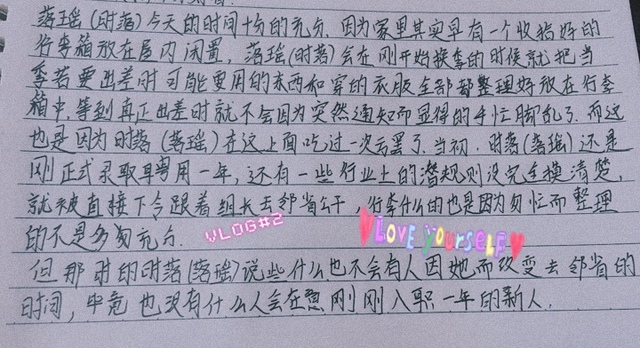 落瑶(时落)今天的时间十分的充分.因为家里其实早有一个收拾好的
行李箱放在屋内闲置,落瑶(时落)会在刚开始换季的时候就把当
季若要出差时可能要用的东西和穿的衣服全部都整理好放在行李
箱中.等到真正出差时就不会因为突然通知而显得的手忙脚乱了.而这
也是因为时落(落瑶)在这上面吃过一次亏罢了.当初,时落(落瑶)还是
刚正式录取聘用一年,还有一些行业上的潜规则没完全摸清楚,
就被直接下令跟着组长去邻省公干,行李什么的也是因为匆忙而整理
的不是多匆充分.
VLOG#2
LOVE YOURSELF
但那时的时落(落瑶)说些什么也不会有人因她而改变去邻省的
时间,毕竟也没有什么人会在意刚刚入职一年的新人.